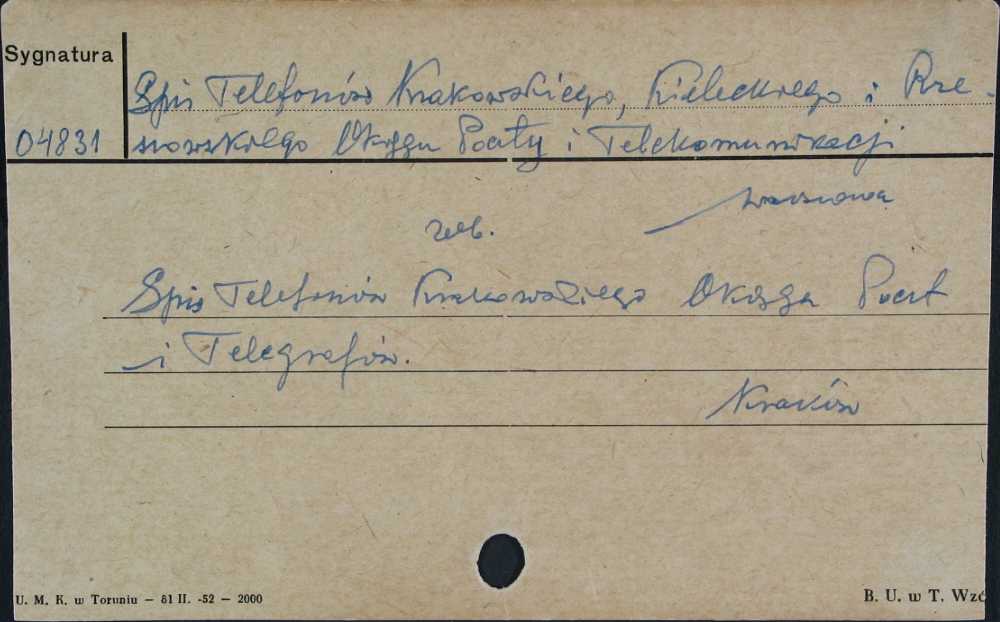 Sygnatura
Spis Telefonów Krakowskiego, Kieleckiego i Rze-
04831 szowskiego Okręgu Poczty i Telekomunikacji
Warszawa
zob.
Spis Telefonów Krakowskiego Okręgu Poczt
i Telegrafów.
Kraków
U. M. K. w Toruniu — 81 II. -52 — 2000
B. U. w T. Wzó